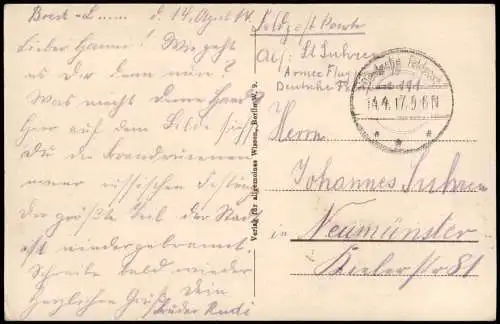 Brest-L..... d. 14. April 17.
Lieber Hanne! Wie geht
es Dir denn nun?
Was macht Deine Hand?
Hier auf dem Bilde siehst
Du die Brandruinen
einer russischen Festung
Der größte Teil der Stadt
ist niedergebrannt.
Schreibe bald wieder
Herzlichen Gruß Dein
Bruder Rudi
Verlag für allgemeines Wissen, Berlin W. 9.
Feldpost Karte
Abs: Lt Suhren
Armee Flug
Deutsche
Deutsche Feldpost
191
14.4.17. 5-6 N
Herrn
Johannes Suhren
in Neumünster
Kielerstr 81